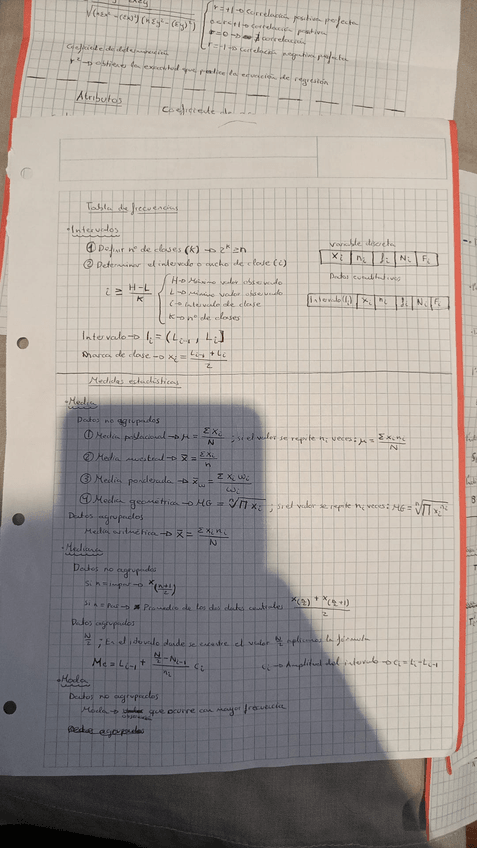 √(nΣx² - (Σx)²)(nΣy² - (Σy)²)
r = +1 → Correlación positiva perfecta
0 < r < +1 → Correlación positiva
r = 0 → ∄ correlación
r = -1 → correlación negativa perfecta
Coeficiente de determinación
r² → obtienes la exactitud que predice la ecuación de regresión
Atributos
Coeficiente de
Tabla de frecuencias
· Intervalos
① Definir nº de clases (K) → 2^K ≥ n
② Determinar el intervalo o ancho de clase (i)
i ≥ (H-L)/K
H → Máximo valor observado
L → mínimo valor observado
i → Intervalo de clase
K → nº de clases
Intervalo → Iᵢ = (Lᵢ₋₁, Lᵢ]
Marca de clase → xᵢ = (Lᵢ₋₁ + Lᵢ)/2
variable discreta
Xᵢ | nᵢ | fᵢ | Nᵢ | Fᵢ
Datos cuantitativos
Intervalo(Iᵢ) | Xᵢ | nᵢ | fᵢ | Nᵢ | Fᵢ
Medidas estadísticas
· Media
Datos no agrupados
① Media poblacional → μ = Σxᵢ/N ; si el valor se repite nᵢ veces: μ = Σxᵢnᵢ/N
② Media muestral → x̄ = Σxᵢ/n
③ Media ponderada → x̄w = Σxᵢωᵢ/ωᵢ
④ Media geométrica → MG = ⁿ√∏xᵢ ; si el valor se repite nᵢ veces: MG = ⁿ√∏xᵢ^nᵢ
Datos agrupados
Media aritmética → x̄ = Σxᵢnᵢ/N
· Mediana
Datos no agrupados
Si n = impar → x((n+1)/2)
Si n = Par → Promedio de los dos datos centrales (x(n/2) + x(n/2+1))/2
Datos agrupados
N/2 ; En el intervalo donde se encuentre el valor N/2 aplicamos la fórmula
Me = Lᵢ₋₁ + ((N/2 - Nᵢ₋₁)/nᵢ) cᵢ
cᵢ → Amplitud del intervalo → cᵢ = Lᵢ - Lᵢ₋₁
· Moda
Datos no agrupados
Moda → observación que ocurre con mayor frecuencia